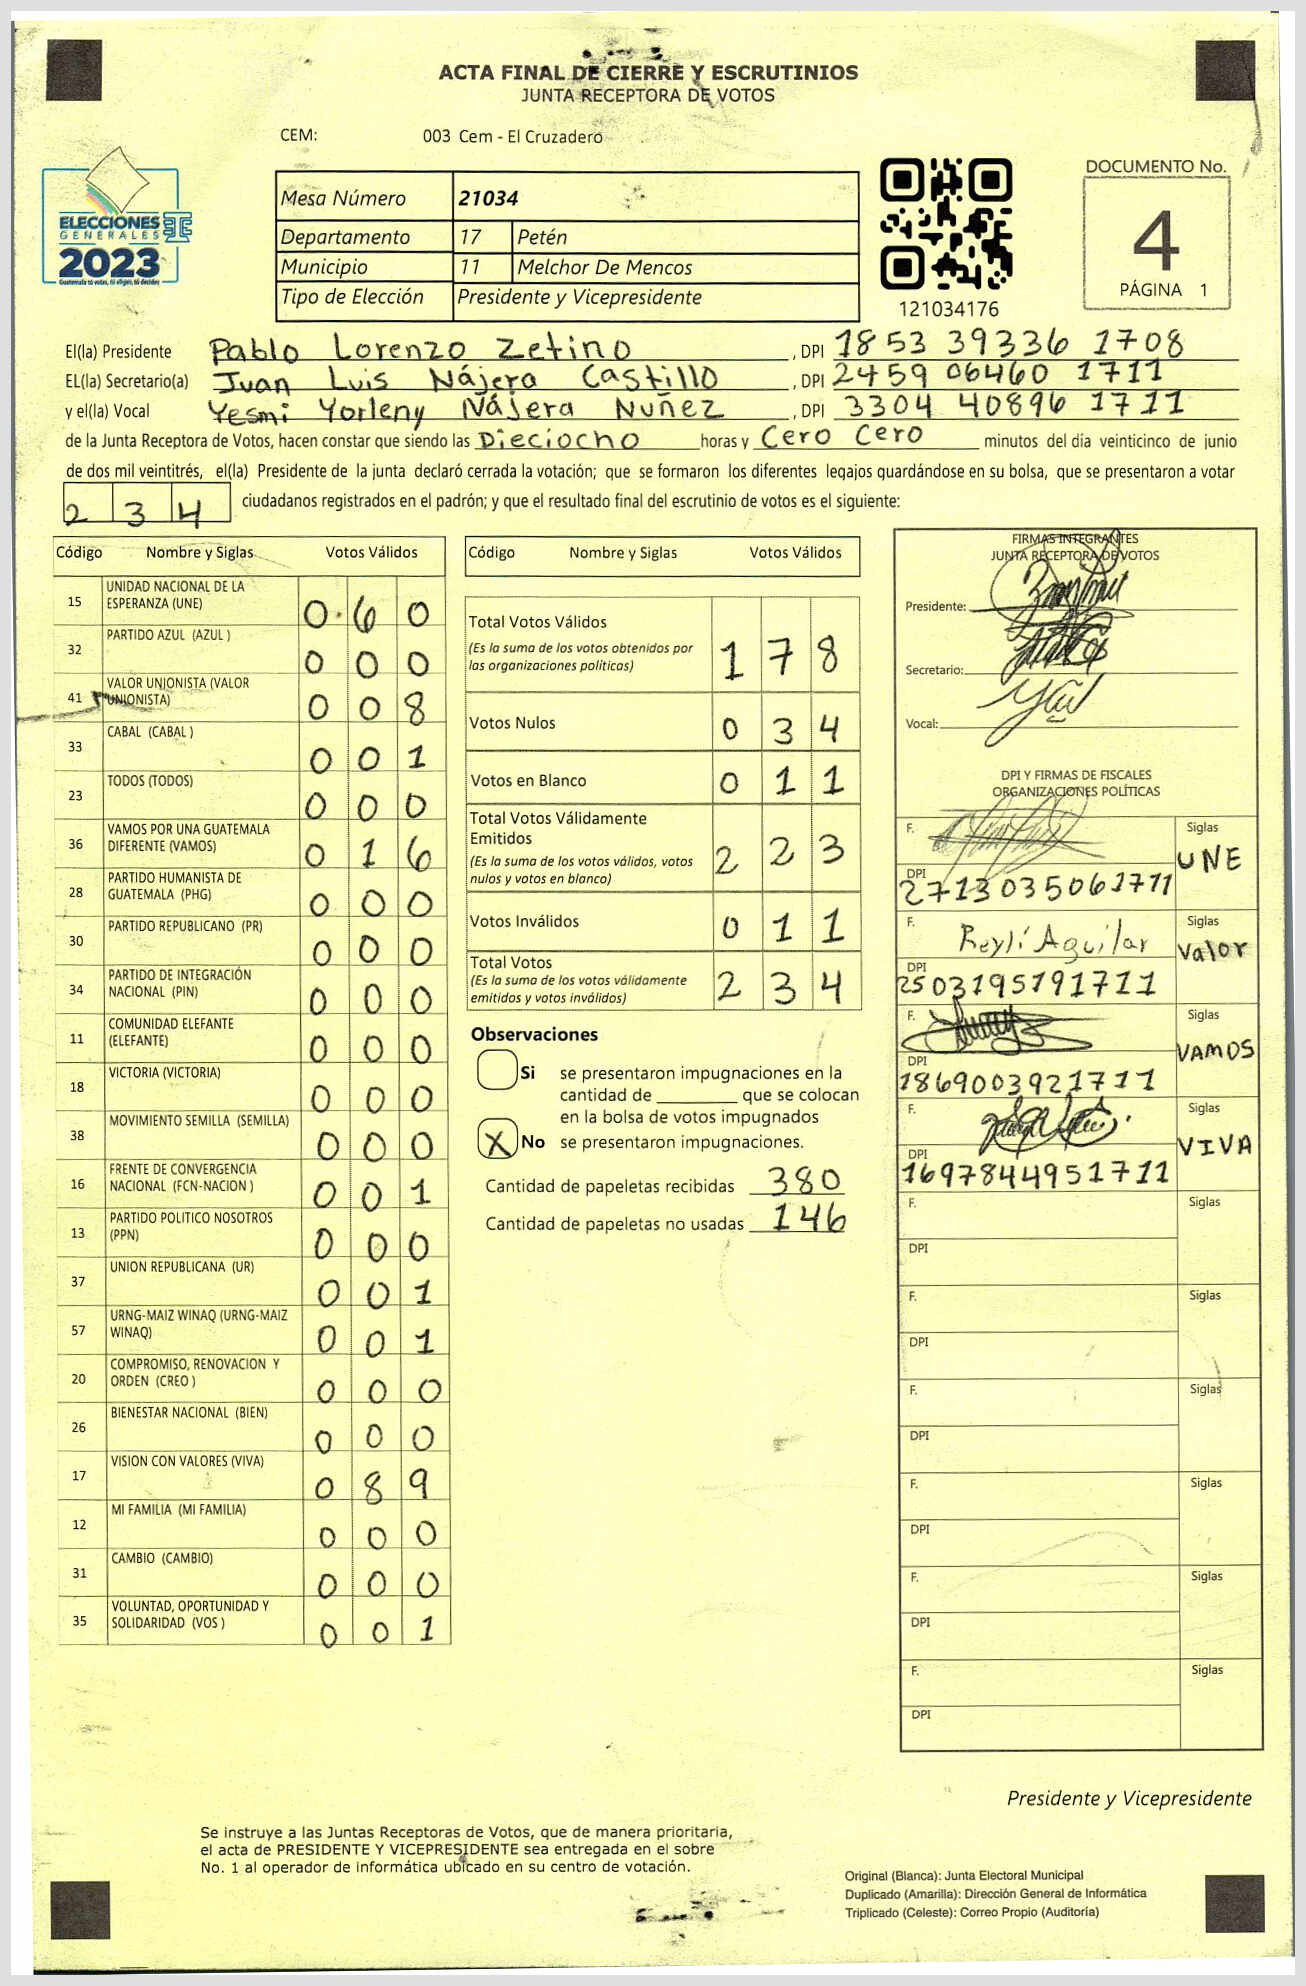 ACTA FINAL DE CIERRE Y ESCRUTINIOS
JUNTA RECEPTORA DE VOTOS
CEM: 003 Cem - El Cruzadero
ELECCIONES
GENERALES
2023
Guatemala tú votas, tú eliges, tú decides
Mesa Número 21034
Departamento 17 Petén
Municipio 11 Melchor De Mencos
Tipo de Elección Presidente y Vicepresidente
121034176
DOCUMENTO No.
4
PÁGINA 1
El(la) Presidente Pablo Lorenzo Zetino , DPI 1853 39336 1708
EL(la) Secretario(a) Juan Luis Nájera Castillo , DPI 2459 06460 1711
y el(la) Vocal Yesmi Yorleny Nájera Nuñez , DPI 3304 40896 1711
de la Junta Receptora de Votos, hacen constar que siendo las Dieciocho horas y Cero Cero minutos del día veinticinco de junio
de dos mil veintitrés, el(la) Presidente de la junta declaró cerrada la votación; que se formaron los diferentes legajos quardándose en su bolsa, que se presentaron a votar
2 3 4 ciudadanos registrados en el padrón; y que el resultado final del escrutinio de votos es el siguiente:
Código Nombre y Siglas Votos Válidos
15 UNIDAD NACIONAL DE LA
ESPERANZA (UNE) 0 6 0
32 PARTIDO AZUL (AZUL ) 0 0 0
41 VALOR UNIONISTA (VALOR
UNIONISTA) 0 0 8
33 CABAL (CABAL ) 0 0 1
23 TODOS (TODOS) 0 0 0
36 VAMOS POR UNA GUATEMALA
DIFERENTE (VAMOS) 0 1 6
28 PARTIDO HUMANISTA DE
GUATEMALA (PHG) 0 0 0
30 PARTIDO REPUBLICANO (PR) 0 0 0
34 PARTIDO DE INTEGRACIÓN
NACIONAL (PIN) 0 0 0
11 COMUNIDAD ELEFANTE
(ELEFANTE) 0 0 0
18 VICTORIA (VICTORIA) 0 0 0
38 MOVIMIENTO SEMILLA (SEMILLA) 0 0 0
16 FRENTE DE CONVERGENCIA
NACIONAL (FCN-NACION ) 0 0 1
13 PARTIDO POLITICO NOSOTROS
(PPN) 0 0 0
37 UNION REPUBLICANA (UR) 0 0 1
57 URNG-MAIZ WINAQ (URNG-MAIZ
WINAQ) 0 0 1
20 COMPROMISO, RENOVACION Y
ORDEN (CREO ) 0 0 0
26 BIENESTAR NACIONAL (BIEN) 0 0 0
17 VISION CON VALORES (VIVA) 0 8 9
12 MI FAMILIA (MI FAMILIA) 0 0 0
31 CAMBIO (CAMBIO) 0 0 0
35 VOLUNTAD, OPORTUNIDAD Y
SOLIDARIDAD (VOS ) 0 0 1
Código Nombre y Siglas Votos Válidos
Total Votos Válidos
(Es la suma de los votos obtenidos por
las organizaciones políticas) 1 7 8
Votos Nulos 0 3 4
Votos en Blanco 0 1 1
Total Votos Válidamente
Emitidos
(Es la suma de los votos válidos, votos
nulos y votos en blanco) 2 2 3
Votos Inválidos 0 1 1
Total Votos
(Es la suma de los votos válidamente
emitidos y votos inválidos) 2 3 4
Observaciones
Si se presentaron impugnaciones en la
cantidad de ________ que se colocan
en la bolsa de votos impugnados
X No se presentaron impugnaciones.
Cantidad de papeletas recibidas 380
Cantidad de papeletas no usadas 146
FIRMAS INTEGRANTES
JUNTA RECEPTORA DE VOTOS
Presidente:
Secretario:
Vocal:
DPI Y FIRMAS DE FISCALES
ORGANIZACIONES POLÍTICAS
F. Siglas
UNE
DPI
2713035061711
F. Reyli Aguilar Siglas
Valor
DPI
2503195191711
F. Siglas
VAMOS
DPI
1869003921711
F. Siglas
VIVA
DPI
1697844951711
F. Siglas
DPI
F. Siglas
DPI
F. Siglas
DPI
F. Siglas
DPI
F. Siglas
DPI
F. Siglas
DPI
Presidente y Vicepresidente
Se instruye a las Juntas Receptoras de Votos, que de manera prioritaria,
el acta de PRESIDENTE Y VICEPRESIDENTE sea entregada en el sobre
No. 1 al operador de informática ubicado en su centro de votación.
Original (Blanca): Junta Electoral Municipal
Duplicado (Amarilla): Dirección General de Informática
Triplicado (Celeste): Correo Propio (Auditoría)